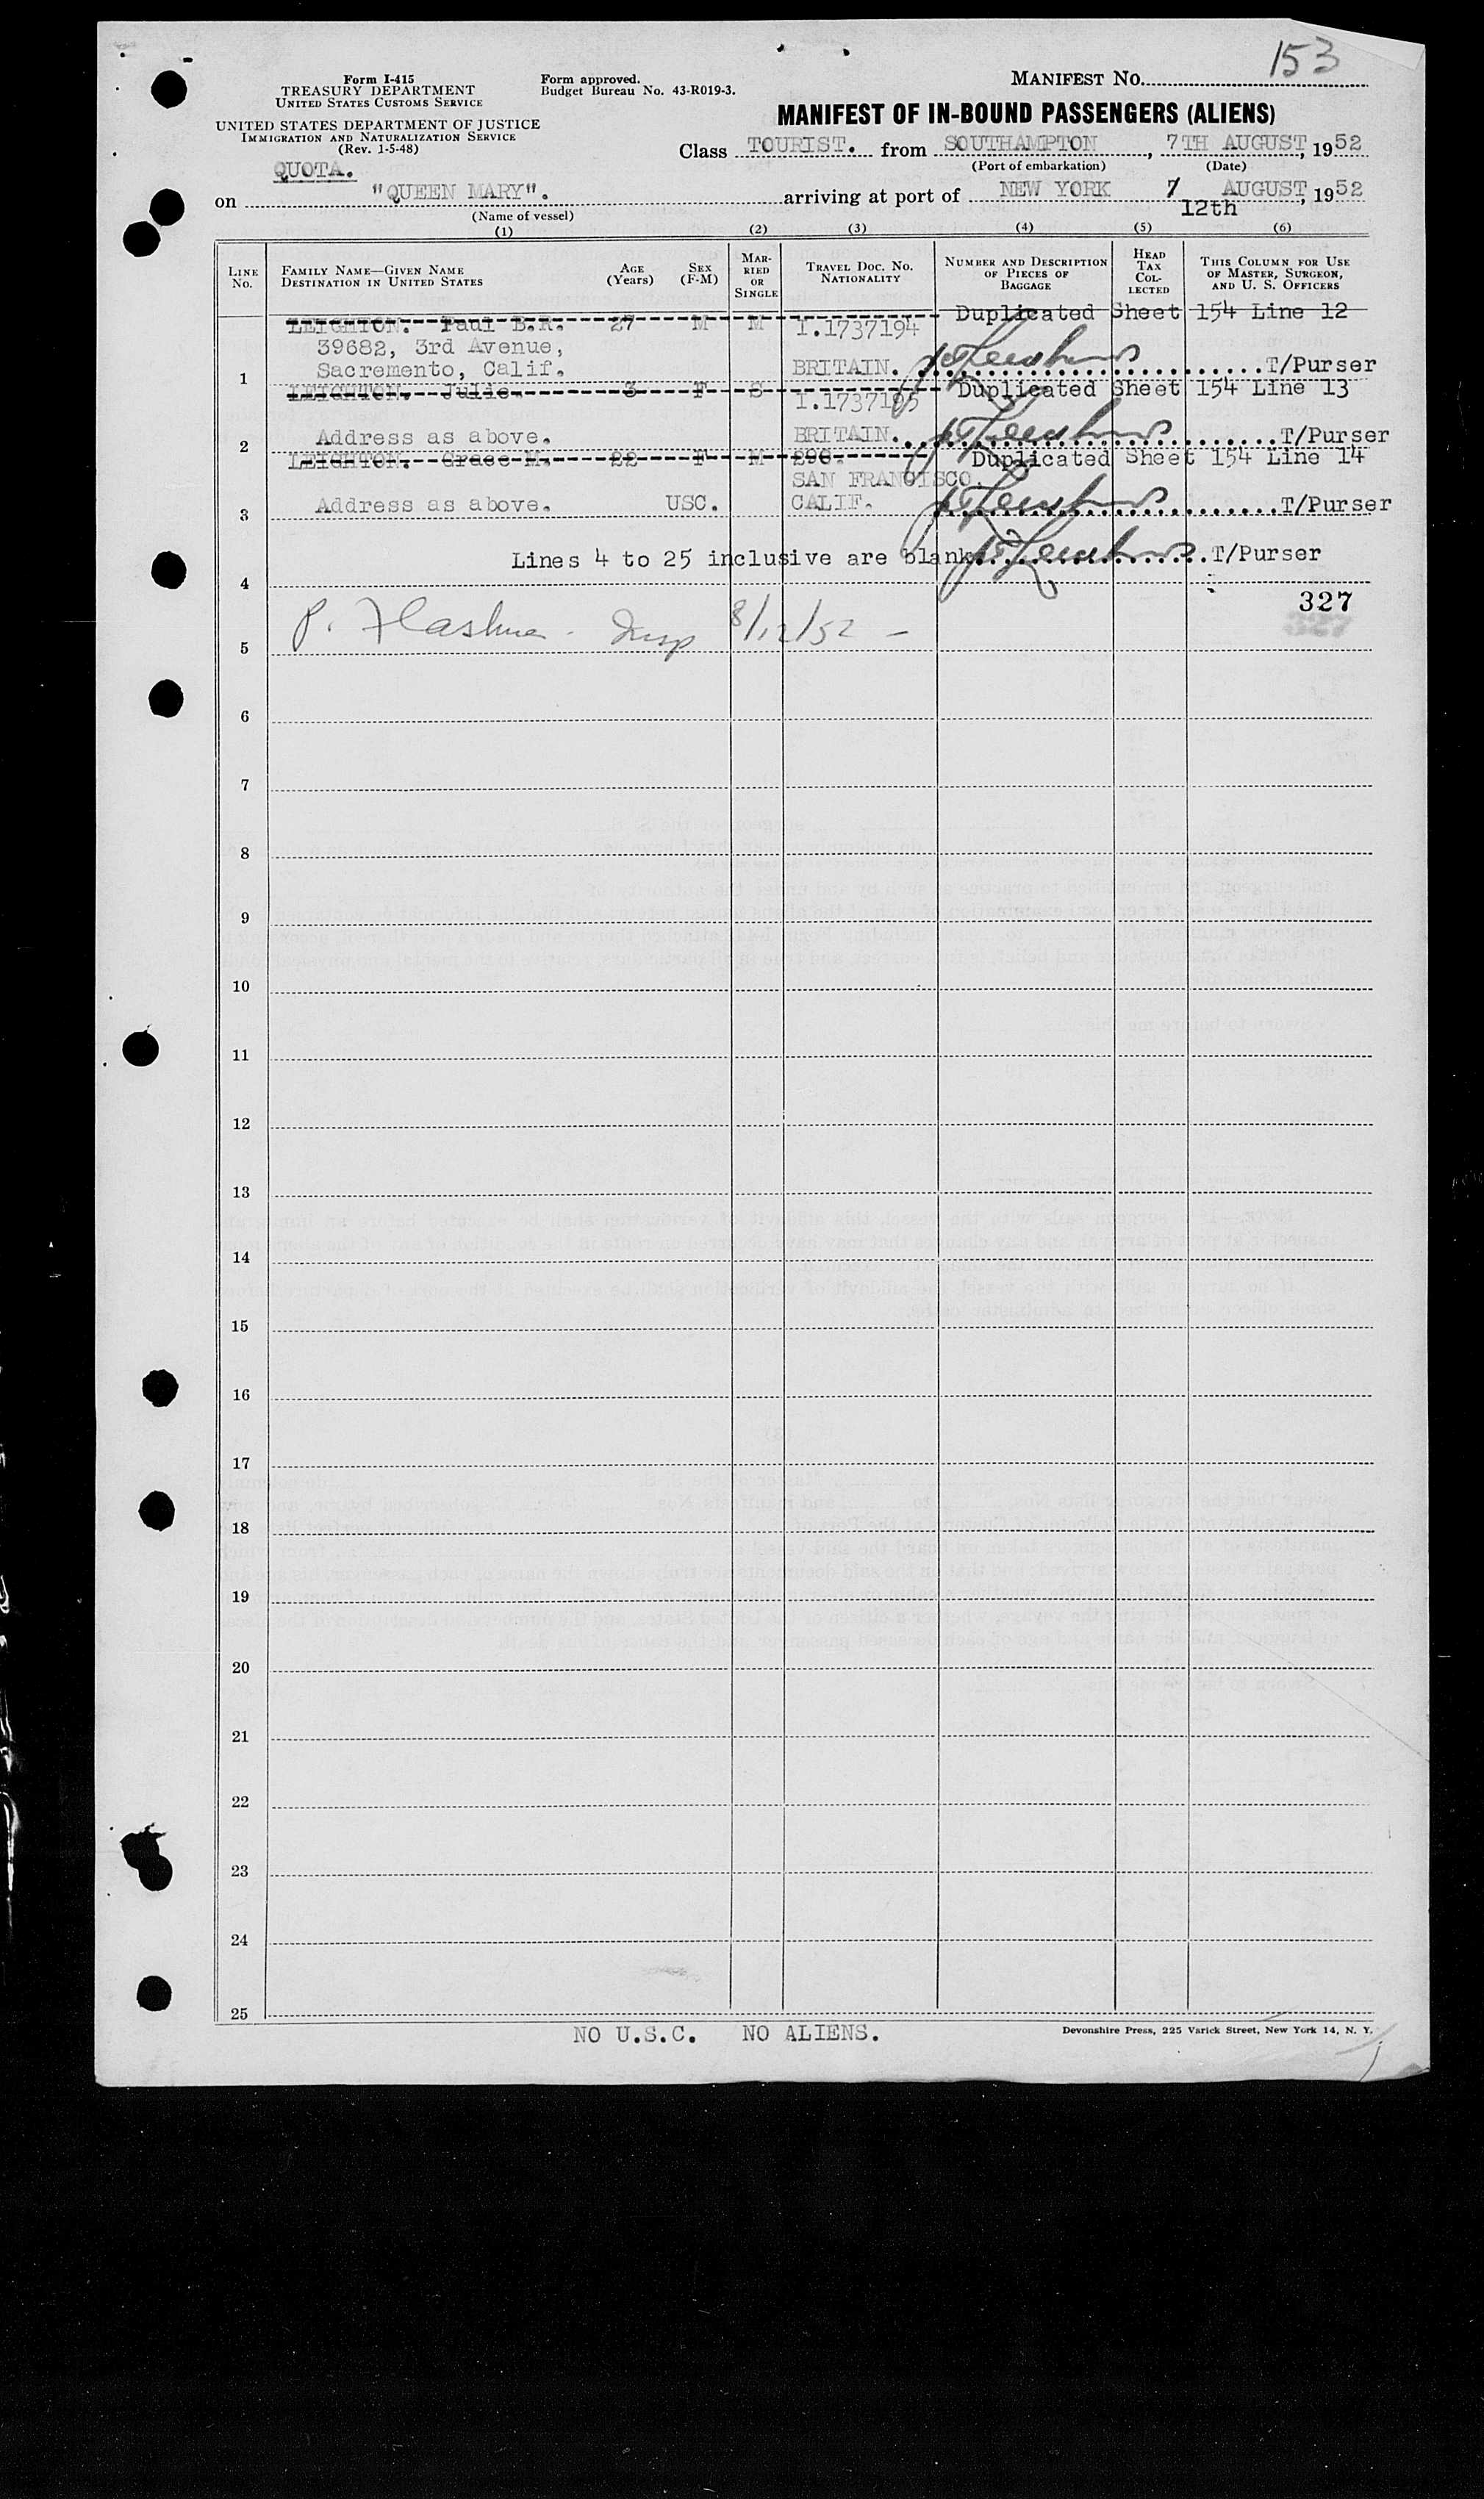 153
MANIFEST NO.
Form I-415
TREASURY DEPARTMENT
UNITED STATES CUSTOMS SERVICE
UNITED STATES DEPARTMENT OF JUSTICE
IMMIGRATION AND NATURALIZATION SERVICE
(Rev. 1-5-48)
Form approved.
Budget Bureau No. 43-R019-3.
MANIFEST OF IN-BOUND PASSENGERS (ALIENS)
Class TOURIST. from SOUTHAMPTON, 7TH AUGUST, 1952
(Port of embarkation) (Date)
QUOTA.
on "QUEEN MARY". arriving at port of NEW YORK 7 AUGUST, 1952
12th
(Name of vessel)
(1) (2) (3) (4) (5) (6)
LINE NO.
FAMILY NAME—GIVEN NAME
DESTINATION IN UNITED STATES
AGE (Years)
SEX (F-M)
MARRIED OR SINGLE
TRAVEL DOC. NO. NATIONALITY
NUMBER AND DESCRIPTION OF PIECES OF BAGGAGE
HEAD TAX COLLECTED
THIS COLUMN FOR USE OF MASTER, SURGEON, AND U. S. OFFICERS
LEIGHTON. Paul B.R. 27 M M I.1737194 Duplicated Sheet 154 Line 12
39682, 3rd Avenue,
1 Sacremento, Calif. BRITAIN. T/Purser
LEIGHTON. Julie. 3 F S I.1737195 Duplicated Sheet 154 Line 13
2 Address as above. BRITAIN. T/Purser
LEIGHTON. Grace M. 22 F M 290. Duplicated Sheet 154 Line 14
SAN FRANCISCO.
3 Address as above. USC. CALIF. T/Purser
Lines 4 to 25 inclusive are blank. T/Purser
4
327
5 P. 8/12/52 —
6
7
8
9
10
11
12
13
14
15
16
17
18
19
20
21
22
23
24
25
NO U.S.C. NO ALIENS.
Devonshire Press, 225 Varick Street, New York 14, N. Y.